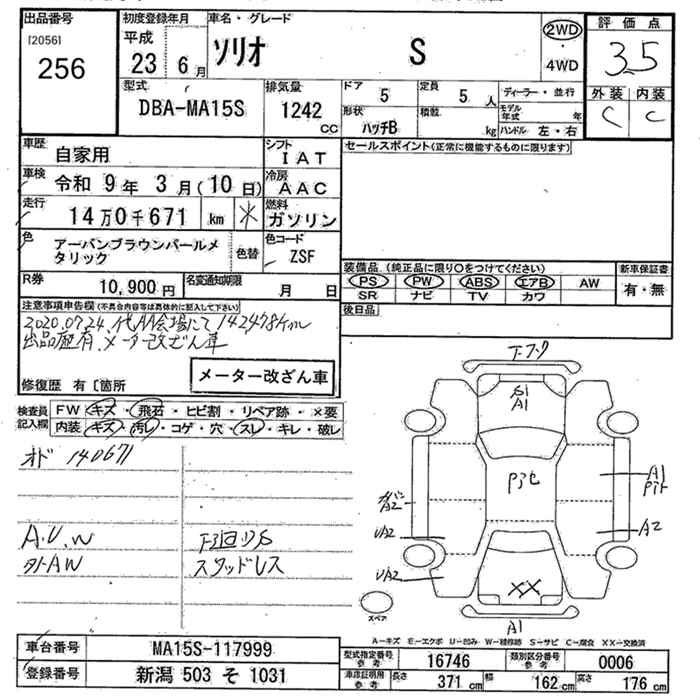 出品番号 初度登録年月 車名・グレード 評価点
[2056]
256
平成
23 6月
ソリオ S
2WD
・
4WD
3.5
外装 内装
C C
型式 排気量 ドア 定員 ディーラー・並行
DBA-MA15S 1242 cc 5 5人
形状 積載 モデル年式 年
ハッチB kg ハンドル 左・右
車歴 シフト セールスポイント(正常に機能するものに限ります)
自家用 IAT
車検 冷房
令和 9年 3月(10日) AAC
走行 燃料
14万0千671 km ＊ ガソリン
色 色替 色コード
アーバンブラウンパールメ
タリック ZSF
R券 名変通知期限
10,900円 月 日
装備品 (純正品に限り○をつけてください) 新車保証書
PS PW ABS エアB AW 有・無
SR ナビ TV カワ
後日品
注意事項申告欄 (不具合内容等は具体的に記入して下さい)
2020.07.24.代AA会場にて142478km
出品歴有.メーター改ざん車
修復歴 有〔箇所
メーター改ざん車
検査員 記入欄
FW キズ・飛石・ヒビ割・リペア跡・×要
内装 キズ・汚レ・コゲ・穴・スレ・キレ・破レ
オド 140671
A.U.W 下廻りS
タトAW スタッドレス
S1
A1
A2
UA2
UA2
A1
A2
XX
A1
スペア
A－キズ E－エクボ U－凹み W－補修跡 S－サビ C－腐食 XX－交換済
車台番号 MA15S-117999
登録番号 新潟 503 そ 1031
型式指定番号 参考 16746 類別区分番号 参考 0006
車庫証明用 参考 長さ 371cm 幅 162cm 高さ 176cm